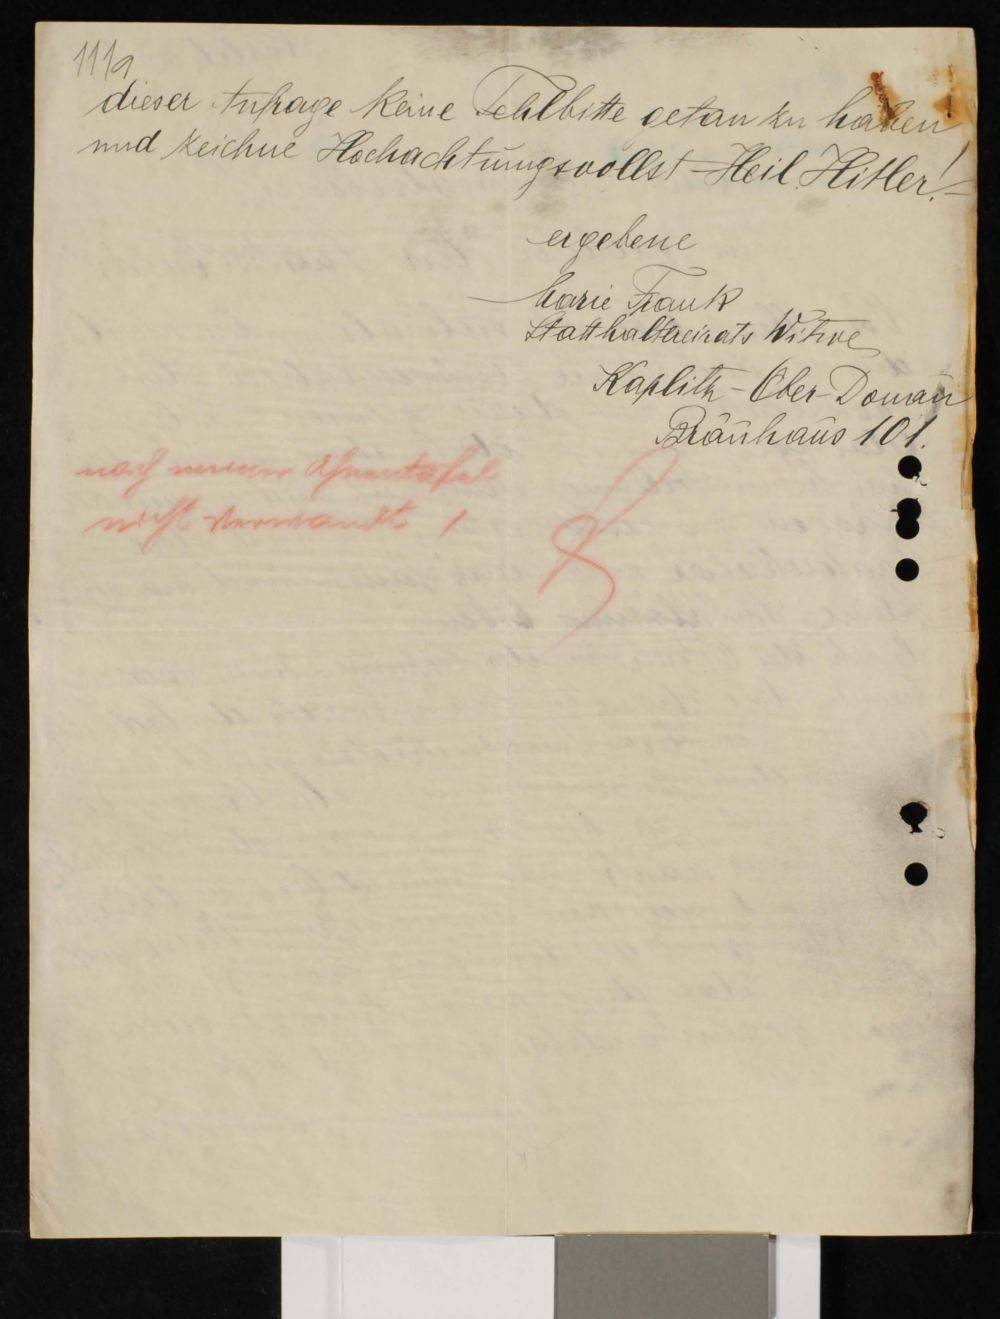 111a
dieser Anfrage keine Fehlbitte getan zu haben
und zeichne Hochachtungsvollst Heil Hitler! –
ergebene
Marie Frank
Statthaltereirats Witwe
Kaplitz – Ober-Donau
Bräuhaus 101.
nach meiner Ahnentafel
nicht verwandt!